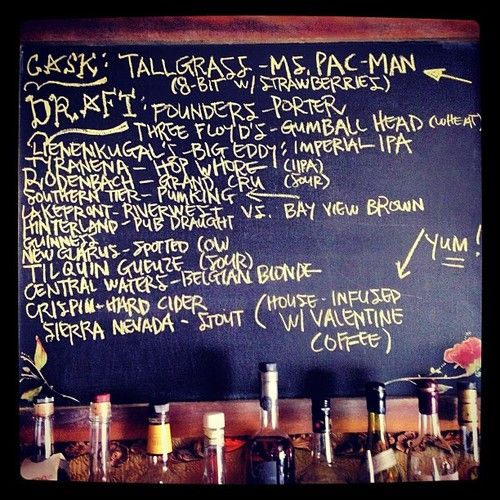 CASK: TALLGRASS - MS. PAC-MAN
(8-BIT W/ STRAWBERRIES)
DRAFT: FOUNDERS - PORTER
THREE FLOYD'S - GUMBALL HEAD (WHEAT)
LIENENKUGAL'S - BIG EDDY: IMPERIAL IPA
TYRANENA - HOP WHORE (IIPA)
RODENBACH - GRAND CRU (SOUR)
SOUTHERN TIER - PUMKING
LAKEFRONT - RIVERWEST VS. BAY VIEW BROWN
HINTERLAND - PUB DRAUGHT
GUINNESS
NEW GLARUS - SPOTTED COW
TILQUIN GUEUZE (SOUR)
CENTRAL WATERS - BELGIAN BLONDE
CRISPIN - HARD CIDER
SIERRA NEVADA - STOUT (HOUSE-INFUSED
W/ VALENTINE
COFFEE)
YUM!